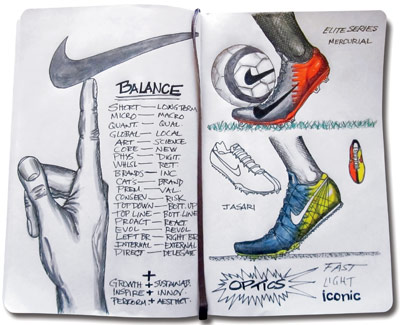 BALANCE
SHORT — LONG TERM
MICRO — MACRO
QUANT. — QUAL
GLOBAL — LOCAL
ART — SCIENCE
CORE — NEW
PHYS — DIGIT.
WHLSL — RET
BRANDS — INC
CATS — BRAND
PREM — VAL
CONSERV — RISK
TOP DOWN — BOTT. UP
TOP LINE — BOTT LINE
PROACT — REACT
EVOL — REVOL
LEFT BR — RIGHT BR
INTERNAL — EXTERNAL
DIRECT — DELEGATE
+
GROWTH + SUSTAINAB.
INSPIRE + INNOV.
PERFORM + AESTHET.
ELITE SERIES
MERCURIAL
JASARI
OPTICS
FAST
LIGHT
iconic